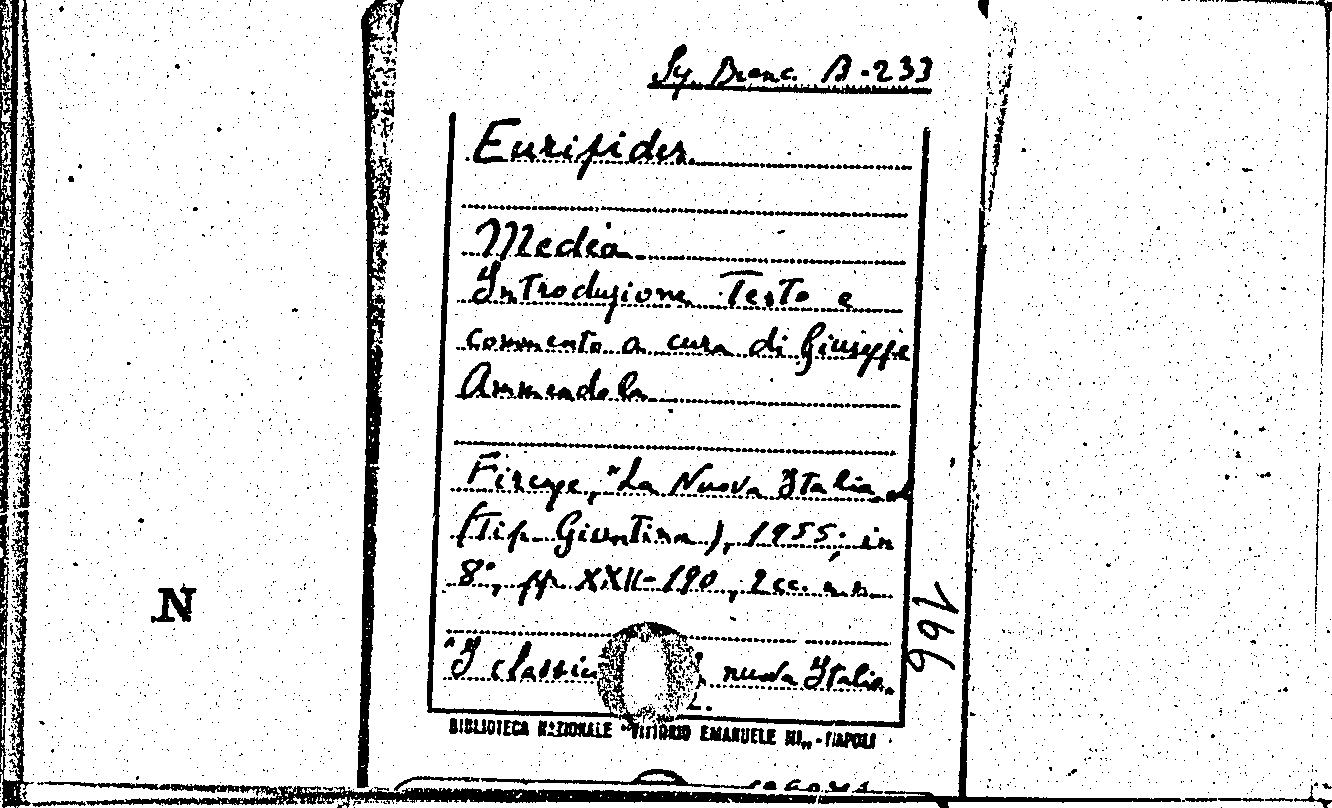 Sy. Branc. A-233
Euripides
Medea
Introduzione Testo e
commento a cura di Giuseppe
Ammendola
Firenze, "La Nuova Italia"
(Tip. Giuntina), 1955; in
8°, pp XXII-190, 2 cc. n.n.
N
166
"I classici nuova Italia.
2.
BIBLIOTECA NAZIONALE "VITTORIO EMANUELE III" - NAPOLI